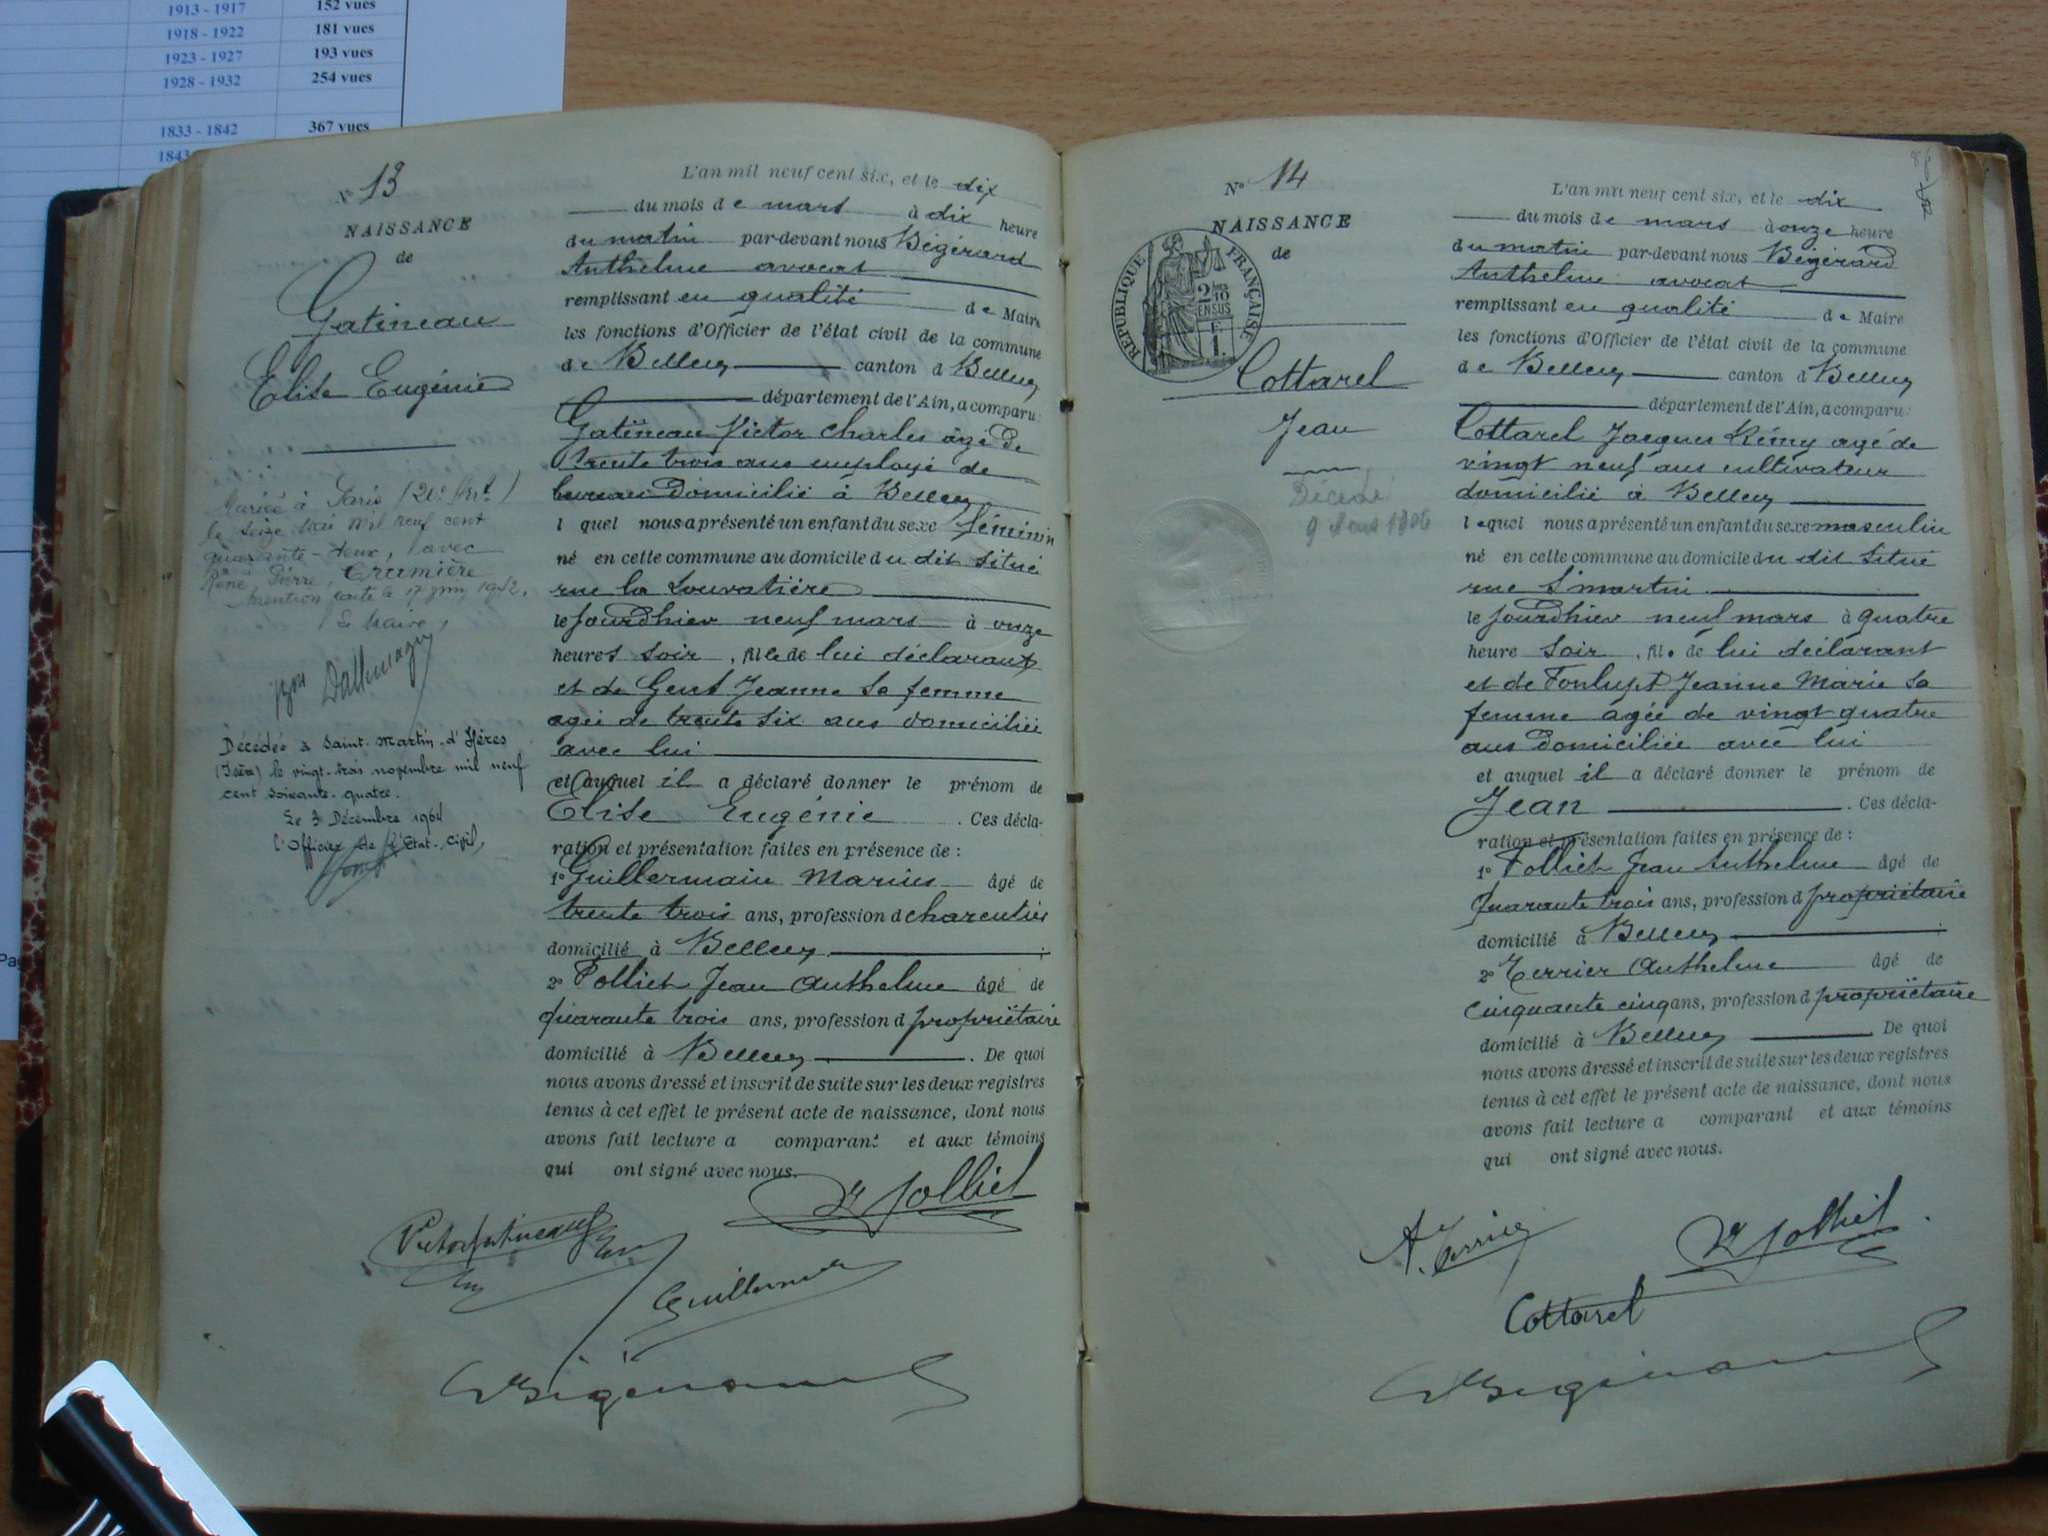 1913 - 1917 152 vues
1918 - 1922 181 vues
1923 - 1927 193 vues
1928 - 1932 254 vues
1833 - 1842 367 vues
1843
Pag
N° 13
NAISSANCE
de
Gatineau
Elise Eugénie
Mariée à Paris (20e Arrt)
le seize Mai mil neuf cent
quarante-deux, avec
René, Pierre, Crumière
Mention faite le 17 juin 1942.
Le Maire,
Dallemagne
Décédée à Saint-Martin-d'Hères
(Isère) le vingt-trois novembre mil neuf
cent soixante-quatre.
Le 3 Décembre 1964
l'Officier de l'Etat-Civil,
L'an mil neuf cent six, et le dix
du mois de mars à dix heure
du matin par-devant nous Bégérard
Anthelme avocat
remplissant en qualité de Maire
les fonctions d'Officier de l'état civil de la commune
de Belley canton d Belley
département de l'Ain, a comparu:
Gatineau Victor Charles âgé de
trente trois ans employé de
bureau domicilié à Belley
l quel nous a présenté un enfant du sexe féminin
né en cette commune au domicile du dit situé
rue la Louvatière
le jourdhier neuf mars à onze
heures soir, fille de lui déclarant
et de Gent Jeanne sa femme
agée de trente six ans domiciliée
avec lui
et auquel il a déclaré donner le prénom de
Elise Eugénie . Ces décla-
ration et présentation faites en présence de :
1° Guillermain Marius âgé de
trente trois ans, profession d charcutier
domicilié à Belley ;
2° Jolliet Jean Anthelme âgé de
quarante trois ans, profession d propriétaire
domicilié à Belley . De quoi
nous avons dressé et inscrit de suite sur les deux registres
tenus à cet effet le présent acte de naissance, dont nous
avons fait lecture a comparant et aux témoins
qui ont signé avec nous.
Jolliet
Victor Gatineau
Guillermain
Bégérard
86
N° 14
NAISSANCE
de
RÉPUBLIQUE FRANÇAISE
2/10 EN SUS
F
1.
Cottarel
Jean
Décédé
9 Aout 1906
L'an mil neuf cent six, et le dix
du mois de mars à onze heure
du matin par-devant nous Bégérard
Anthelme avocat
remplissant en qualité de Maire
les fonctions d'Officier de l'état civil de la commune
de Belley canton d Belley
département de l'Ain, a comparu:
Cottarel Jacques Rémy agé de
vingt neuf ans cultivateur
domicilié à Belley
lequel nous a présenté un enfant du sexe masculin
né en cette commune au domicile du dit situé
rue St martin
le jourdhier neuf mars à quatre
heure soir, fil de lui déclarant
et de Fonlupt Jeanne Marie sa
femme âgée de vingt quatre
ans domiciliée avec lui
et auquel il a déclaré donner le prénom de
Jean . Ces décla-
ration et présentation faites en présence de :
1° Jolliet Jean Anthelme âgé de
quarante trois ans, profession d propriétaire
domicilié à Belley ;
2° Terrier Anthelme âgé de
cinquante cinq ans, profession d propriétaire
domicilié à Belley De quoi
nous avons dressé et inscrit de suite sur les deux registres
tenus à cet effet le présent acte de naissance, dont nous
avons fait lecture a comparant et aux témoins
qui ont signé avec nous.
A. Terrier
Jolliet
Cottarel
Bégérard